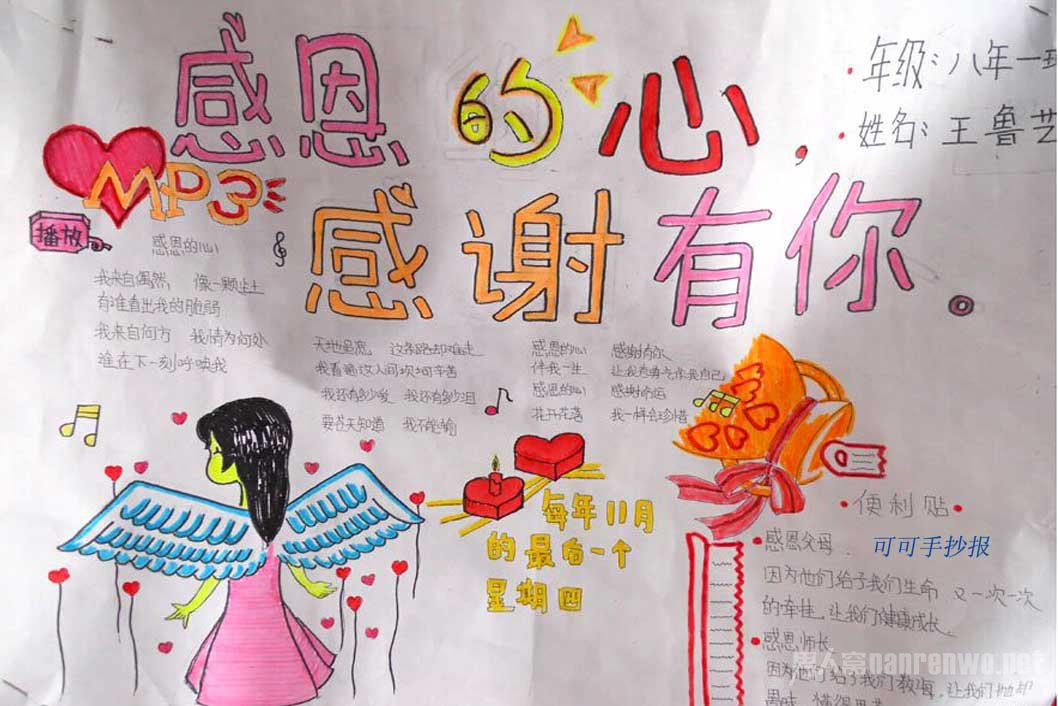 感恩的心,
感谢有你。
年级:八年一班
姓名:王鲁艺
MP3
播放
感恩的心
我来自偶然, 像一颗尘土
有谁看出我的脆弱
我来自何方 我情为何处
谁在下一刻呼唤我
天地虽宽 这条路却难走
我看遍这人间坎坷辛苦
我还有多少爱 我还有多少泪
要苍天知道 我不能输
感恩的心 感谢有你
伴我一生 让我有勇气作我自己
感恩的心 感谢命运
花开花落 我一样会珍惜
每年11月
的最后一个
星期四
·便利贴·
感恩父母.
可可手抄报
因为他们给了我们生命 又一次一次
的牵挂,让我们健康成长。
感恩师长
因为他们给了我们教诲,让我们抛却
愚昧,懂得思考
男人窝nanrenwo.net